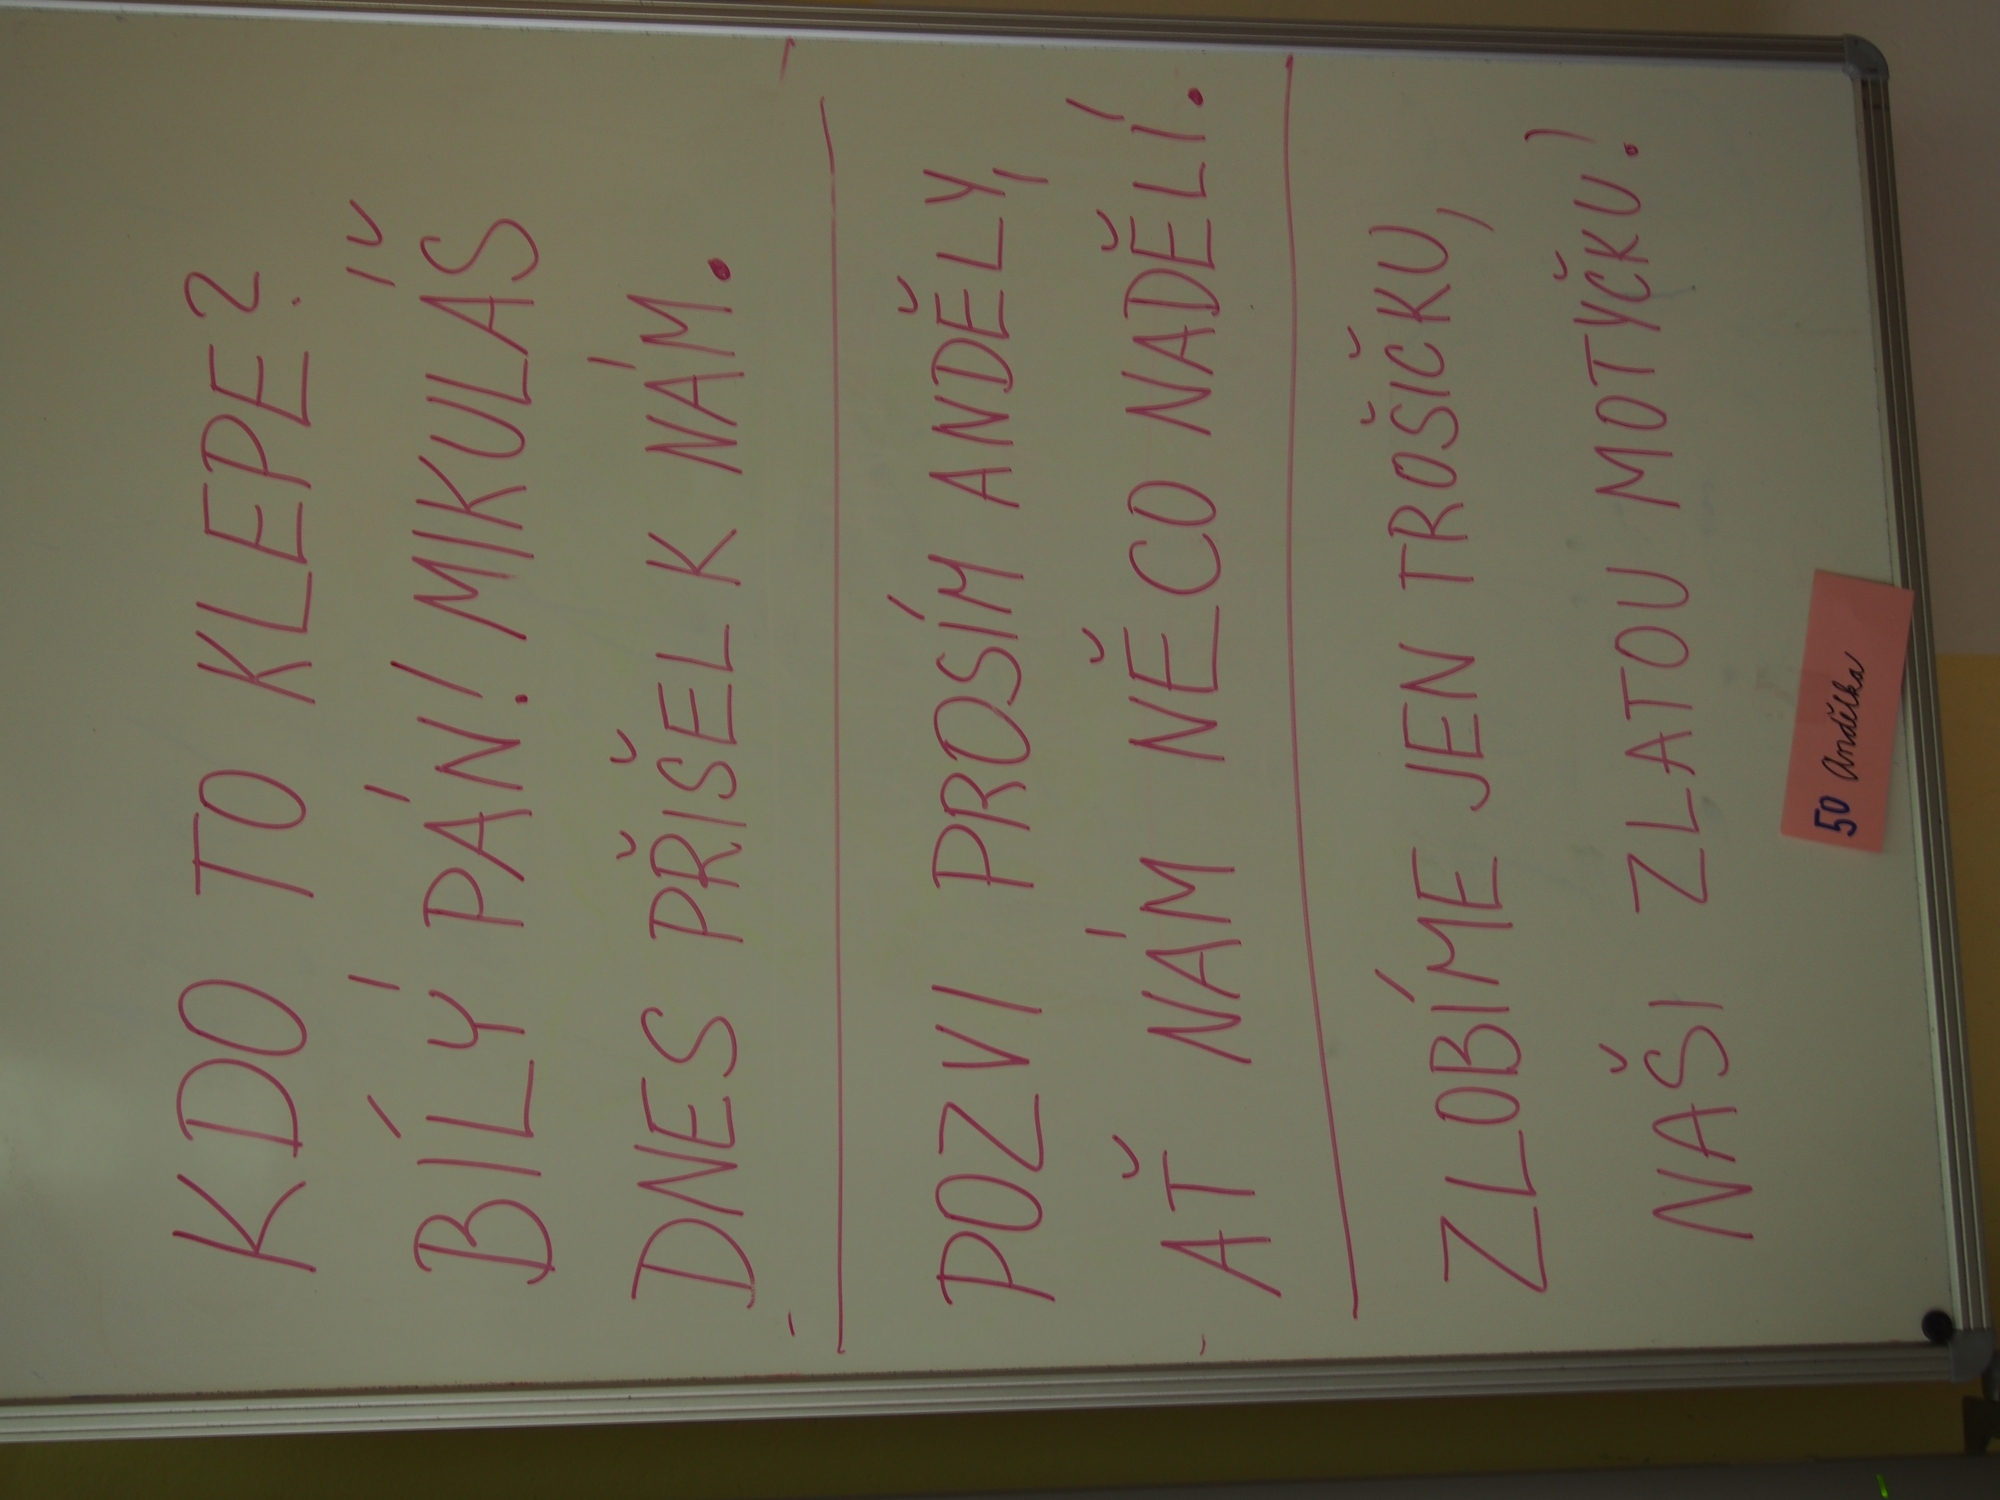 KDO TO KLEPE?
BÍLÝ PÁN! MIKULÁŠ
DNES PŘIŠEL K NÁM.
POZVI PROSÍM ANDĚLY,
AŤ NÁM NĚCO NADĚLÍ.
ZLOBÍME JEN TROŠIČKU,
NAŠI ZLATOU MOTYČKU!
50 Andělka